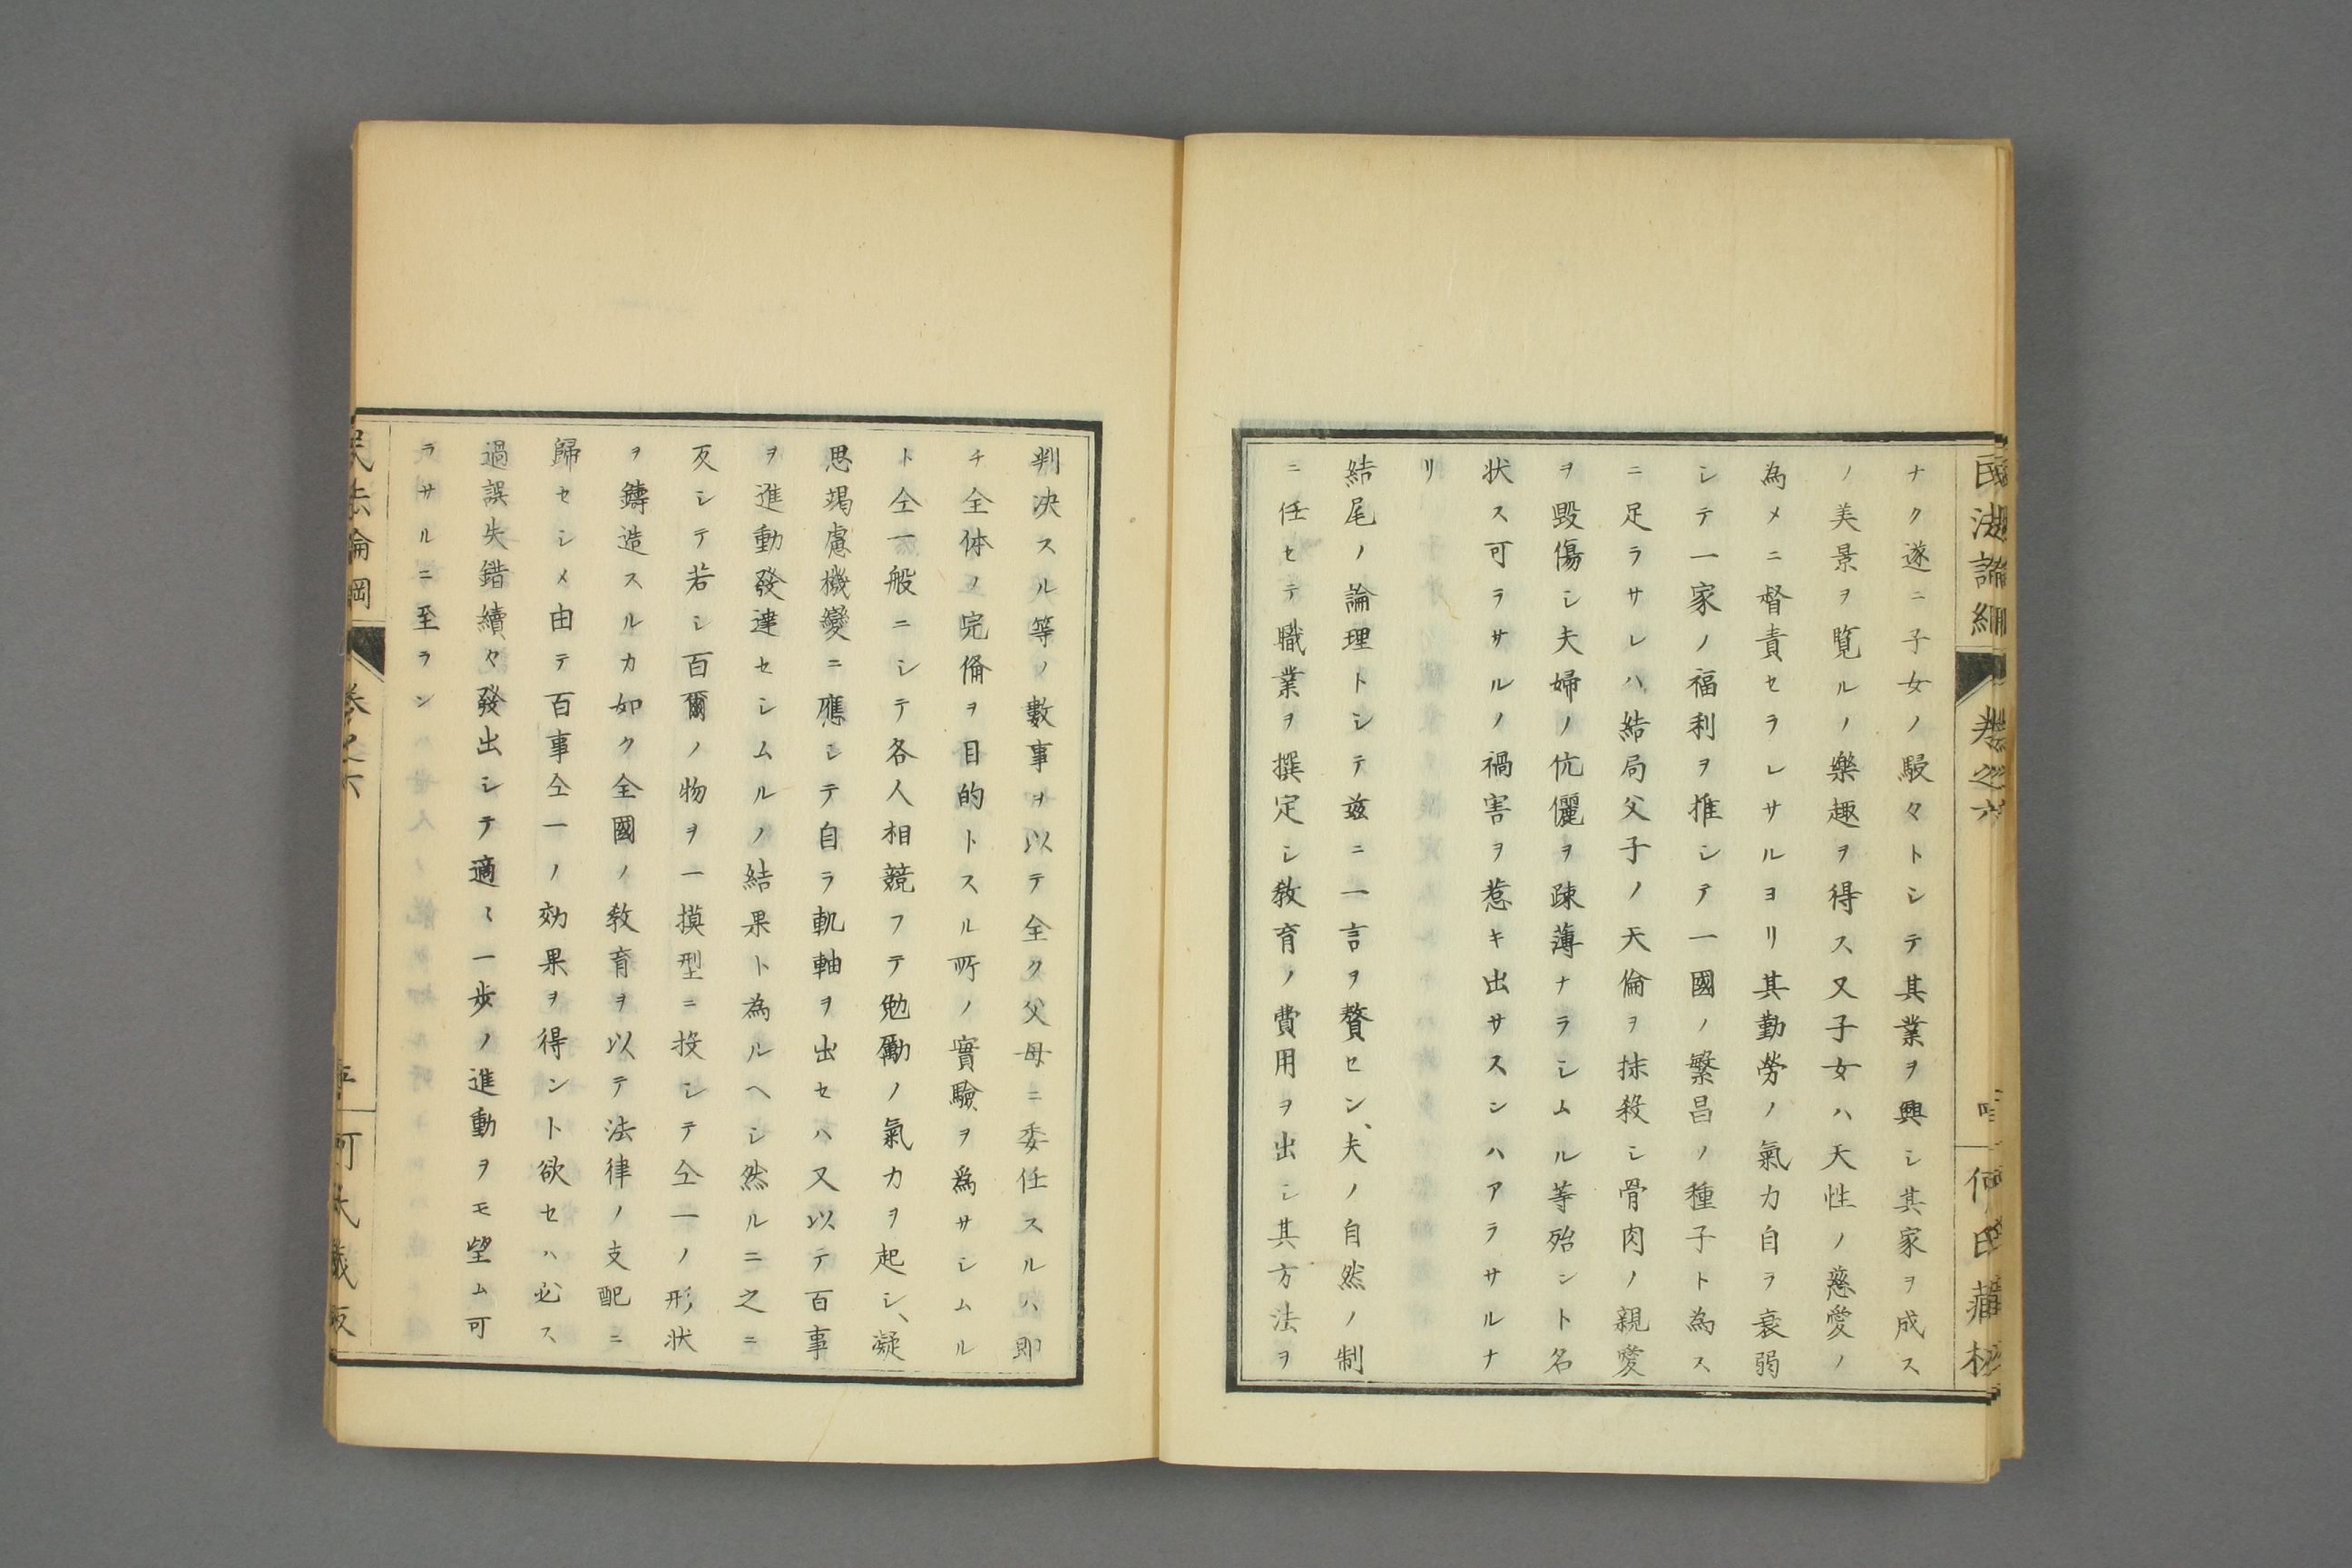 ナク遂ニ子女ノ駸々トシテ其業ヲ興シ其家ヲ成ス
ノ美景ヲ覧ルノ樂趣ヲ得ス又子女ハ天性ノ慈愛ノ
為メニ督責セラレサルヨリ其勤勞ノ氣力自ラ衰弱
シテ一家ノ福利ヲ推シテ一國ノ繁昌ノ種子ト為ス
ニ足ラサレハ結局父子ノ天倫ヲ抹殺シ骨肉ノ親愛
ヲ毀傷シ夫婦ノ伉儷ヲ疎薄ナラシムル等殆ント名
状ス可ラサルノ禍害ヲ惹キ出サスンハアラサルナ
リ
結尾ノ論理トシテ茲ニ一言ヲ贅セン、夫ノ自然ノ制
ニ任セテ職業ヲ撰定シ教育ノ費用ヲ出シ其方法ヲ
判决スル等ノ數事ヲ以テ全ク父母ニ委任スルハ即
チ全体ノ完備ヲ目的トスル所ノ實驗ヲ為サシムル
ト仝一般ニシテ各人相競フテ勉勵ノ氣力ヲ起シ、凝
思竭慮機變ニ應シテ自ラ軌軸ヲ出セハ又以テ百事
ヲ進動發達セシムルノ結果ト為ルヘシ然ルニ之ニ
反シテ若シ百爾ノ物ヲ一摸型ニ投シテ仝一ノ形状
ヲ鑄造スルカ如ク全國ノ教育ヲ以テ法律ノ支配ニ
歸セシメ由テ百事仝一ノ効果ヲ得ント欲セハ必ス
過誤失錯續々發出シテ適〻一歩ノ進動ヲモ望ム可
ラサルニ至ラン
民法論綱
卷之六
何氏藏板